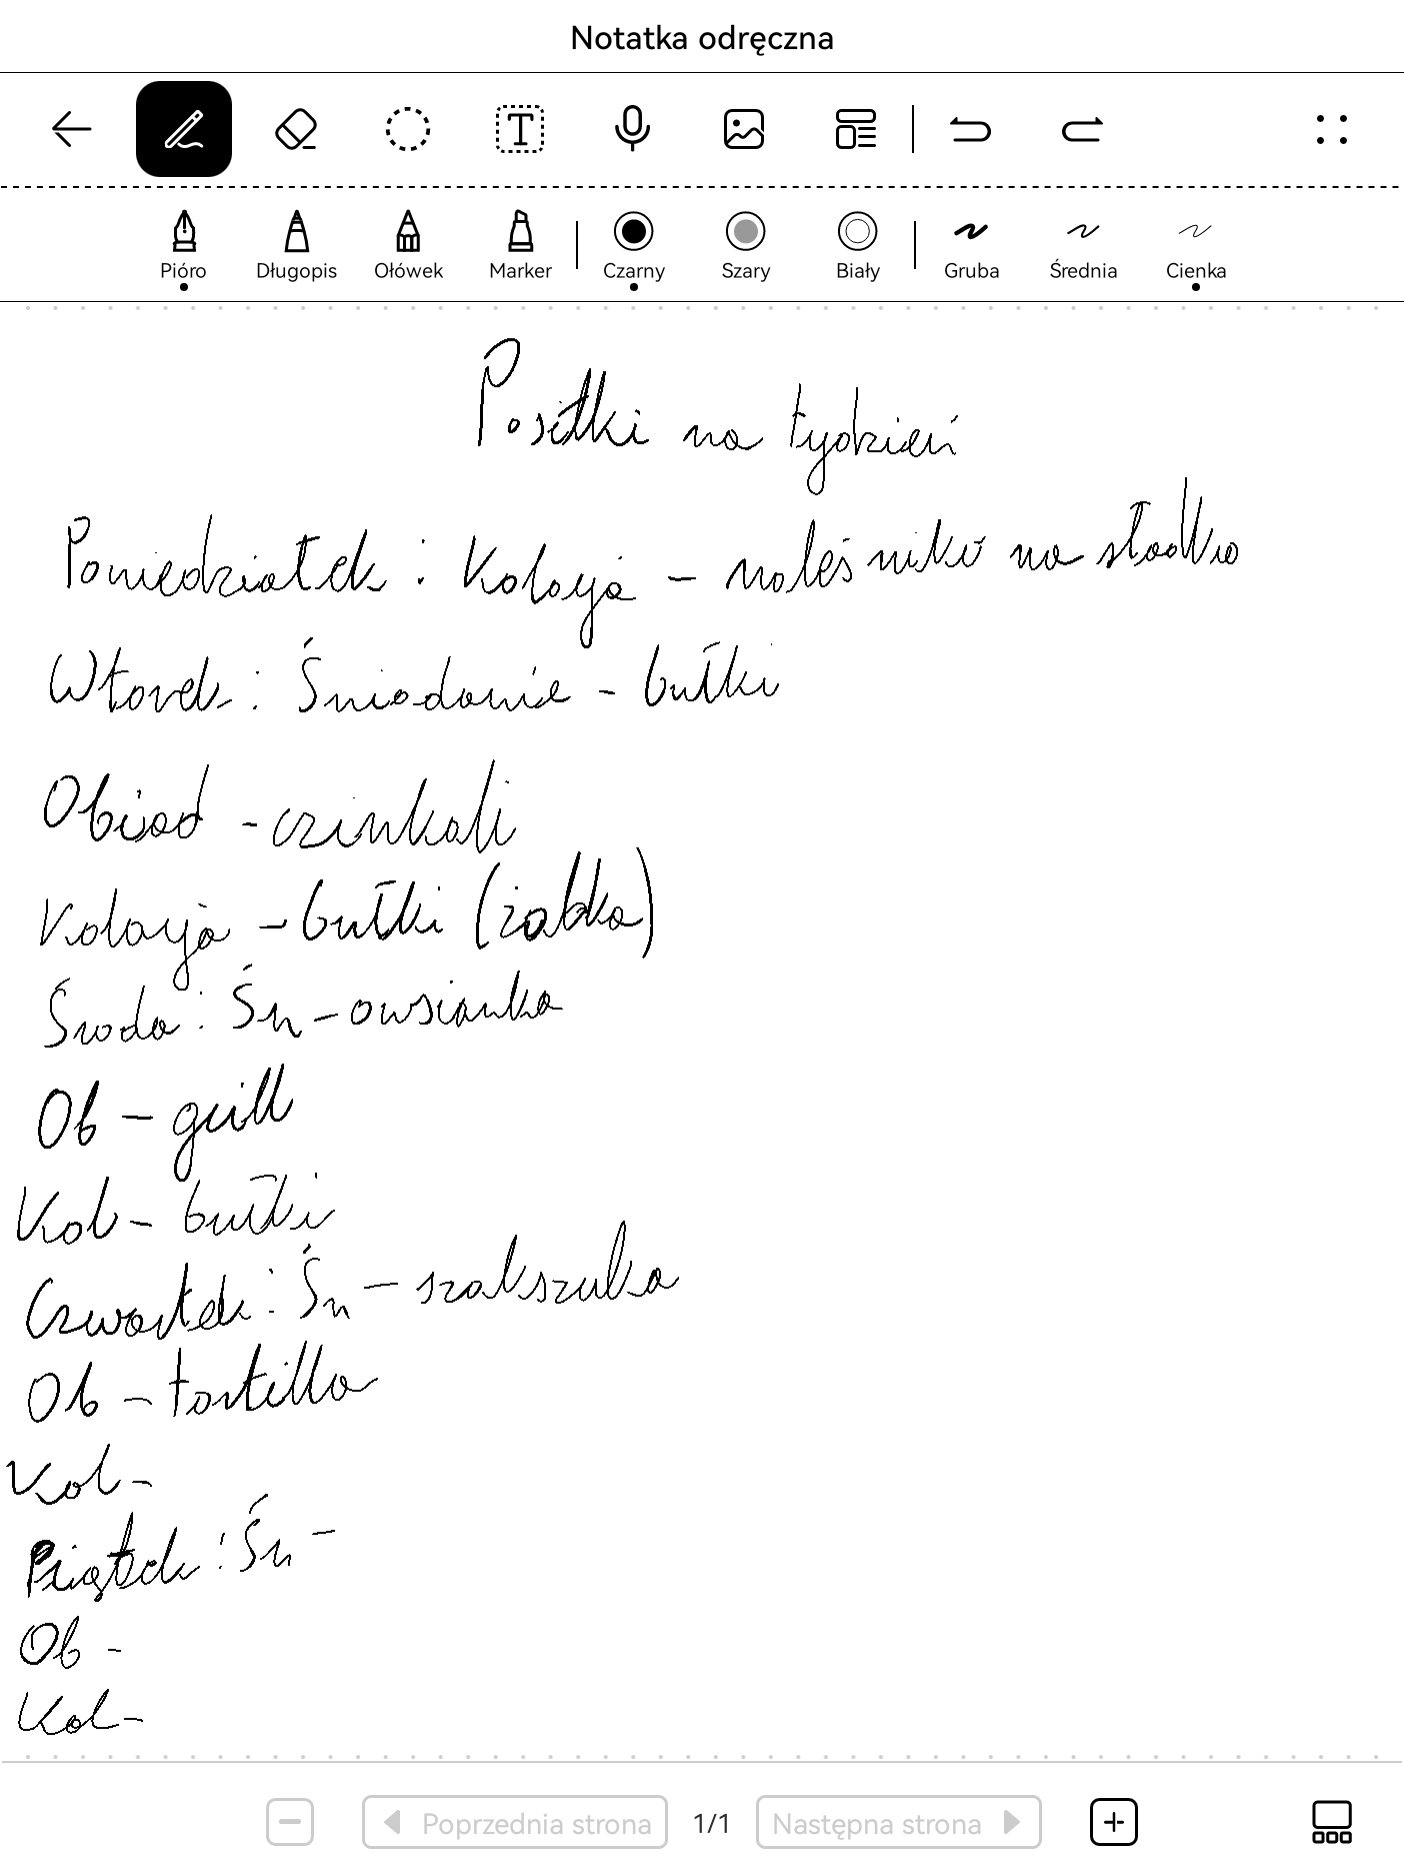 Notatka odręczna
Pióro Długopis Ołówek Marker Czarny Szary Biały Gruba Średnia Cienka
Posiłki na tydzień
Poniedziałek : Kolacja - naleśniki na słodko
Wtorek : Śniadanie - bułki
Obiad - czinkali
Kolacja - bułki (żabka)
Środa : Śn - owsianka
Ob - grill
Kol - bułki
Czwartek : Śn - szakszuka
Ob - tortilla
Kol -
Piątek : Śn -
Ob -
Kol -
Poprzednia strona 1/1 Następna strona